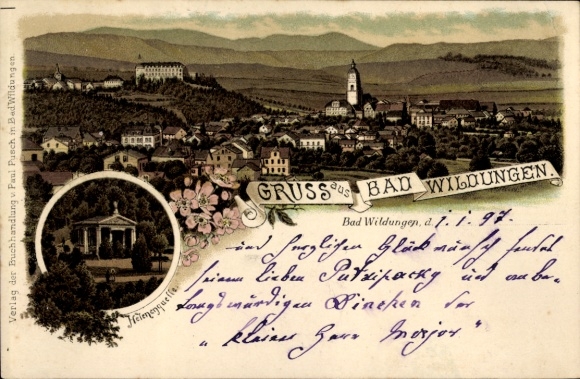 Verlag der Buchhandlung v. Paul Pusch in Bad Wildungen.
GRUSS aus BAD WILDUNGEN.
Helenenquelle.
Bad Wildungen, d. 1.1.97.
und herzlichen Glückwunsch sendet
seinem lieben und
würdigen Binchen der
„kleine Herr Major"